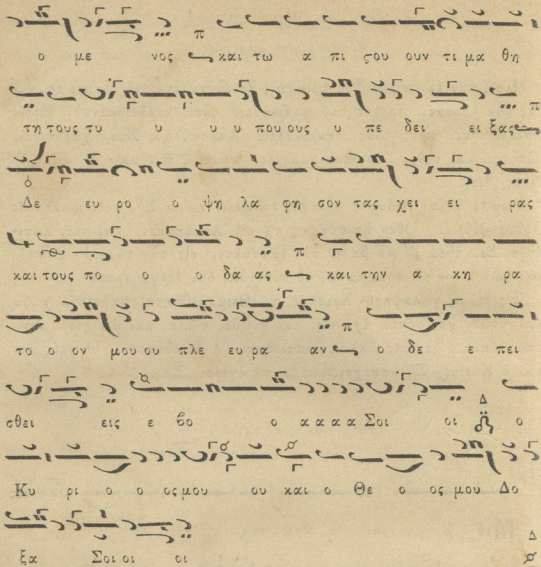 ο με νος και τω α πι ϛου ουν τι μα θη
τη τους τυ υ υ υ που ους υ πε δει ει ξας
Δε ευ ρο ο ψη λα φη σον τας χει ει ρας
και τους πο ο ο δα ας και την α κη ρα
το ο ον μου ου πλε ευ ρα αν ο δε ε πει
σθει εις ε βο ο α α α α Σοι οι ο
Κυ ρι ο ο ος μου ου και ο Θε ο ος μου Δο
ξα Σοι οι οι